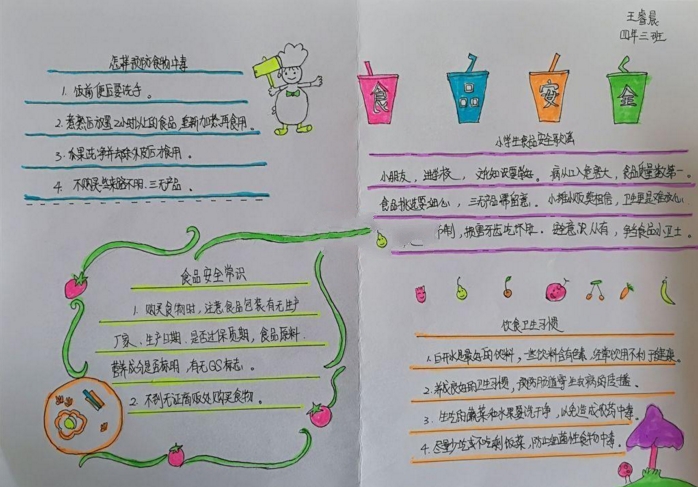 怎样预防食物中毒
1. 饭前便后要洗手。
2. 煮熟后放置2小时以上的食品,重新加热再食用。
3. 水果洗净并去除外皮后才食用。
4 不购买来路不明三无产品。
食品安全常识
1. 购买食物时,注意食品包装有无生产
厂家、生产日期,是否过保质期,食品原料
营养成分是否标明,有无QS标志。
2. 不到无证商贩处购买食物。
王睿晨
四年三班
食品安全
小学生食品安全
小朋友,进学校,
病从口入危害大,食品质量数第一。
食品挑选要细心,三无产品
卫生
损害牙齿
争当食品小卫士。
饮食卫生习惯
1. 白开水是最好的饮料,一些饮料含有色素,经常饮用不利于健康。
2. 养成良好的卫生习惯,预防肠道寄生虫病的传播。
3. 生吃的蔬菜和水果要洗干净,以免造成农药中毒。
4. 尽量少吃或不吃剩饭菜,防止细菌性食物中毒。